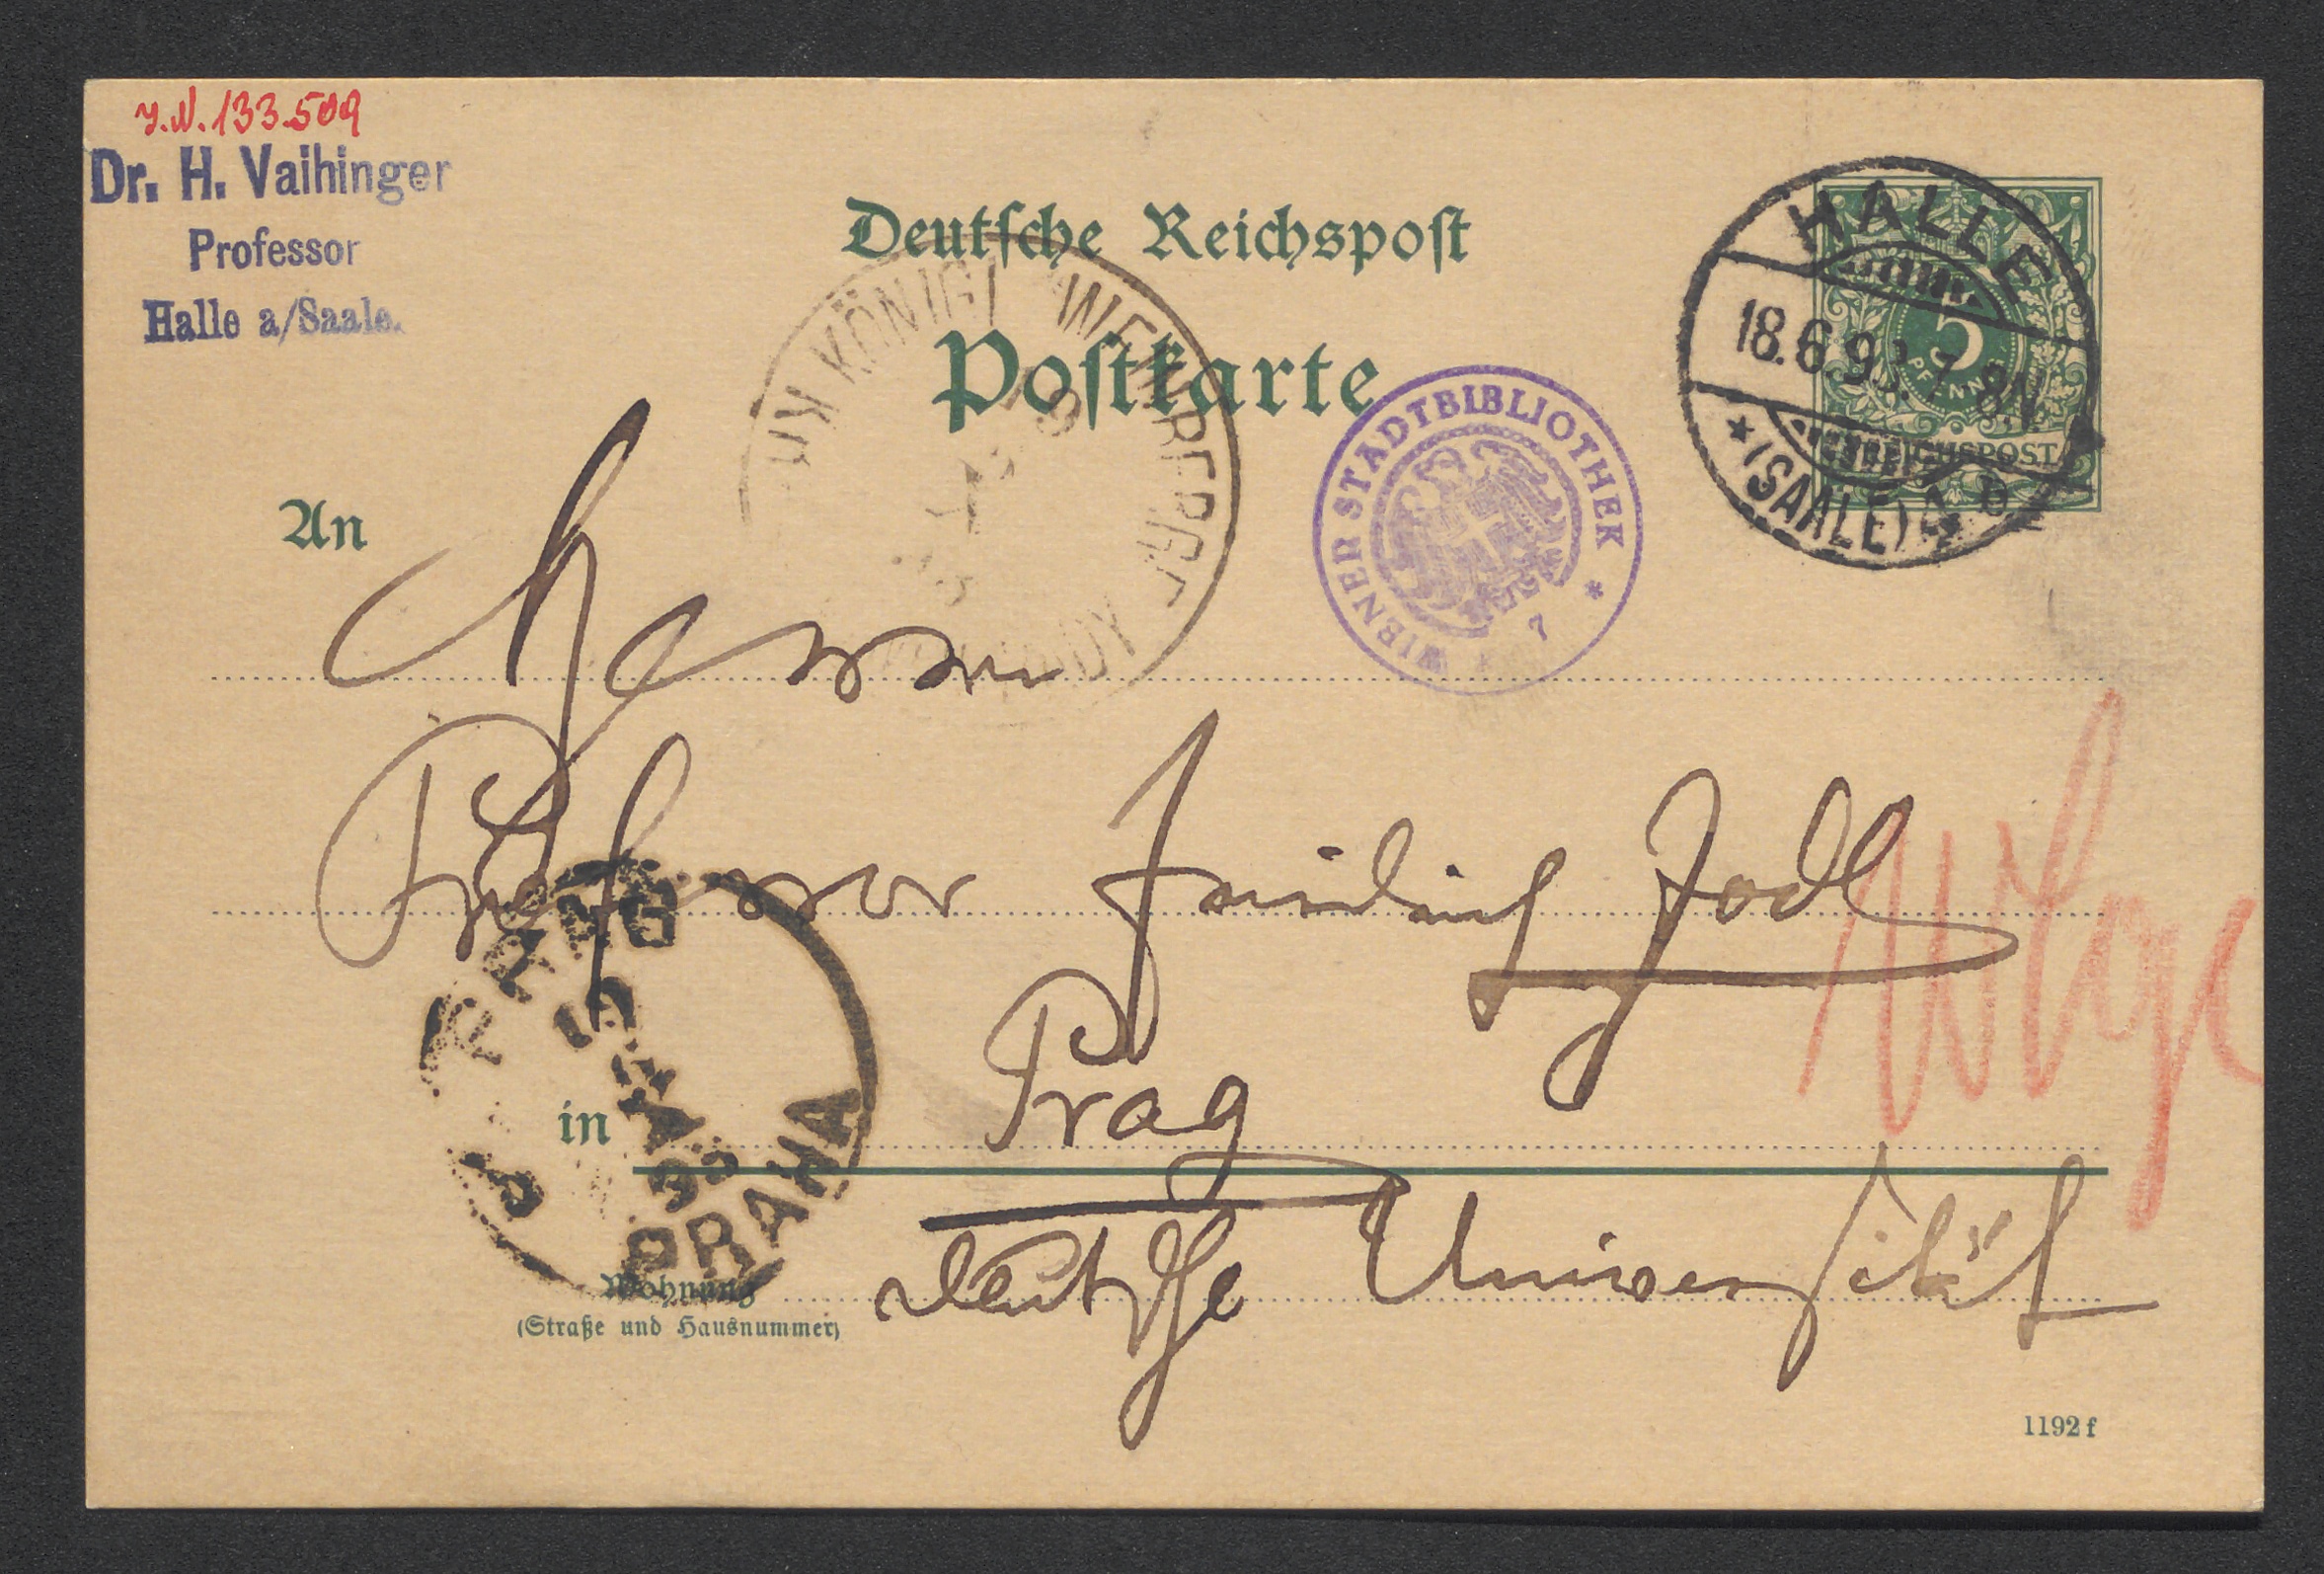 J.N. 133.509
Dr. H. Vaihinger
Professor
Halle a/Saale.
Deutsche Reichspost
Postkarte
HALLE
18.6.93. 7-8N.
* (SAALE)
5
PFENNIG
REICHSPOST
KÖNIGL WEINBERGE
WIENER STADTBIBLIOTHEK * 7
An
Herrn
Professor Friedrich Jodl
in Prag
PRAG
93
PRAHA
Wohnung
(Straße und Hausnummer)
deutsche Universität
1192 f